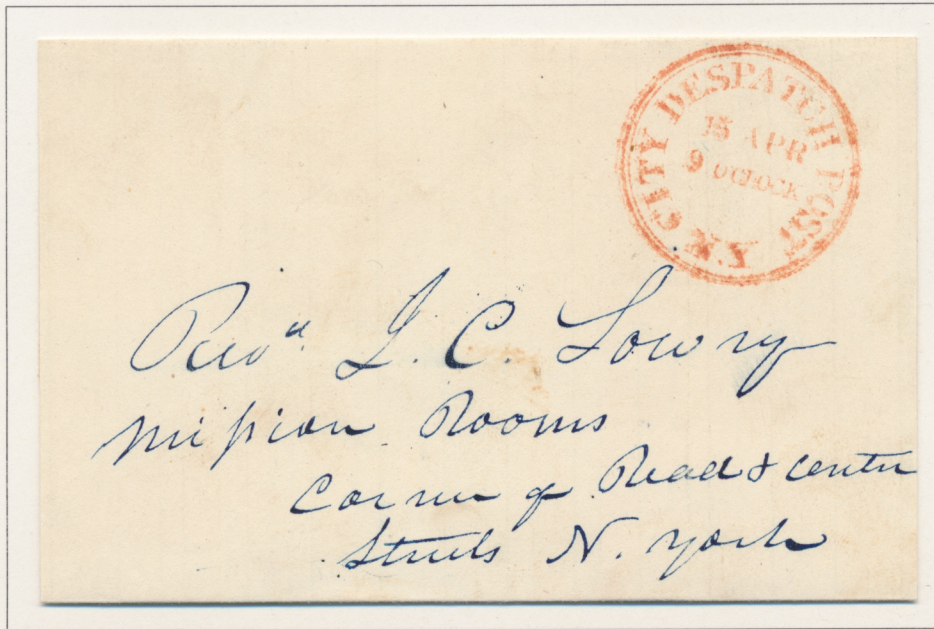 N.Y. CITY DESPATCH POST
15 APR
9 OCLOCK
Revd. J. C. Lowry
Mission Rooms
Corner of Read & Center
Streets N. York